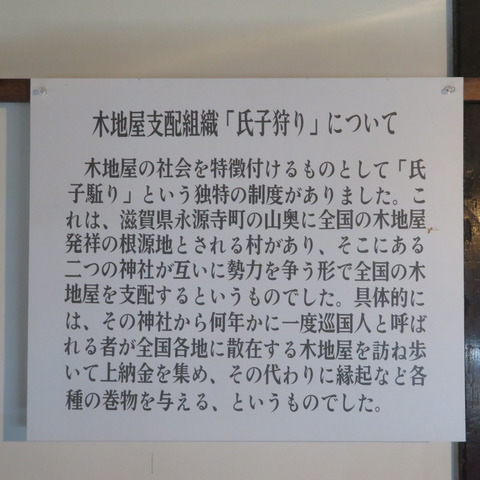 木地屋支配組織「氏子狩り」について
　木地屋の社会を特徴付けるものとして「氏
子駈り」という独特の制度がありました。こ
れは、滋賀県永源寺町の山奥に全国の木地屋
発祥の根源地とされる村があり、そこにある
二つの神社が互いに勢力を争う形で全国の木
地屋を支配するというものでした。具体的に
は、その神社から何年かに一度巡国人と呼ば
れる者が全国各地に散在する木地屋を訪ね歩
いて上納金を集め、その代わりに縁起など各
種の巻物を与える、というものでした。